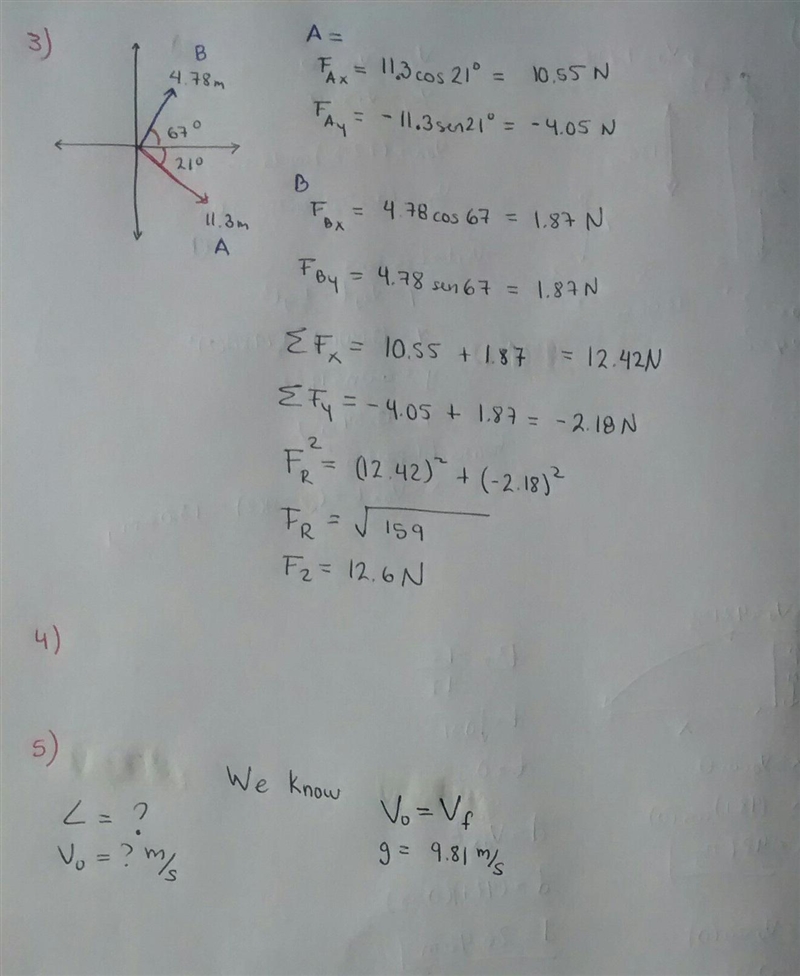 3)
B
4.78m
67°
21°
11.3m
A
A =
F_Ax = 11.3 cos 21° = 10.55 N
F_Ay = - 11.3 sen 21° = -4.05 N
B
F_Bx = 4.78 cos 67 = 1.87 N
F_By = 4.78 sen 67 = 1.87 N
ΣF_x = 10.55 + 1.87 = 12.42 N
ΣF_y = -4.05 + 1.87 = -2.18 N
F_R² = (12.42)² + (-2.18)²
F_R = √159
F_2 = 12.6 N
4)
5)
We know
∠ = ?
V_0 = V_f
V_0 = ? m/s
g = 9.81 m/s